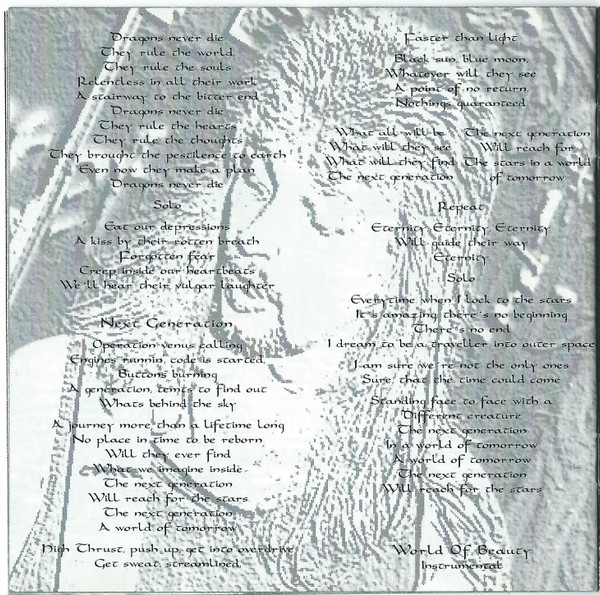 Dragons never die
They rule the world,
They rule the souls
Relentless in all their work
A stairway to the bitter end
Dragons never die
They rule the hearts
They rule the thoughts
They brought the pestilence to earth
Even now they make a plan
Dragons never die
Solo
Eat our depressions
A kiss by their rotten breath
Forgotten fear
Creep inside our heartbeats
We'll hear their vulgar laughter
Next Generation
Operation venus calling
Engines runnin, code is started,
Buttons burning
A generation, temts to find out
Whats behind the sky
A journey more than a lifetime long
No place in time to be reborn
Will they ever find
What we imagine inside
The next generation
Will reach for the stars
The next generation
A world of tomorrow
High Thrust, push up, get into overdrive
Get sweat, streamlined,
Faster than light
Black sun, blue moon,
Whatever will they see
A point of no return,
Nothings guaranteed
What all will be
What will they see
What will they find
The next generation
The next generation
Will reach for
The stars in a world
of tomorrow
Repeat
Eternity, Eternity, Eternity
Will guide their way
Eternity
Solo
Everytime when I lock to the stars
It's amazing there's no beginning
There's no end
I dream to be a traveller into outer space
I am sure we're not the only ones
Sure, that the time could come
Standing face to face with a
Different creature
The next generation
In a world of tomorrow
A world of tomorrow
The next generation
Will reach for the stars
World Of Beauty
Instrumental